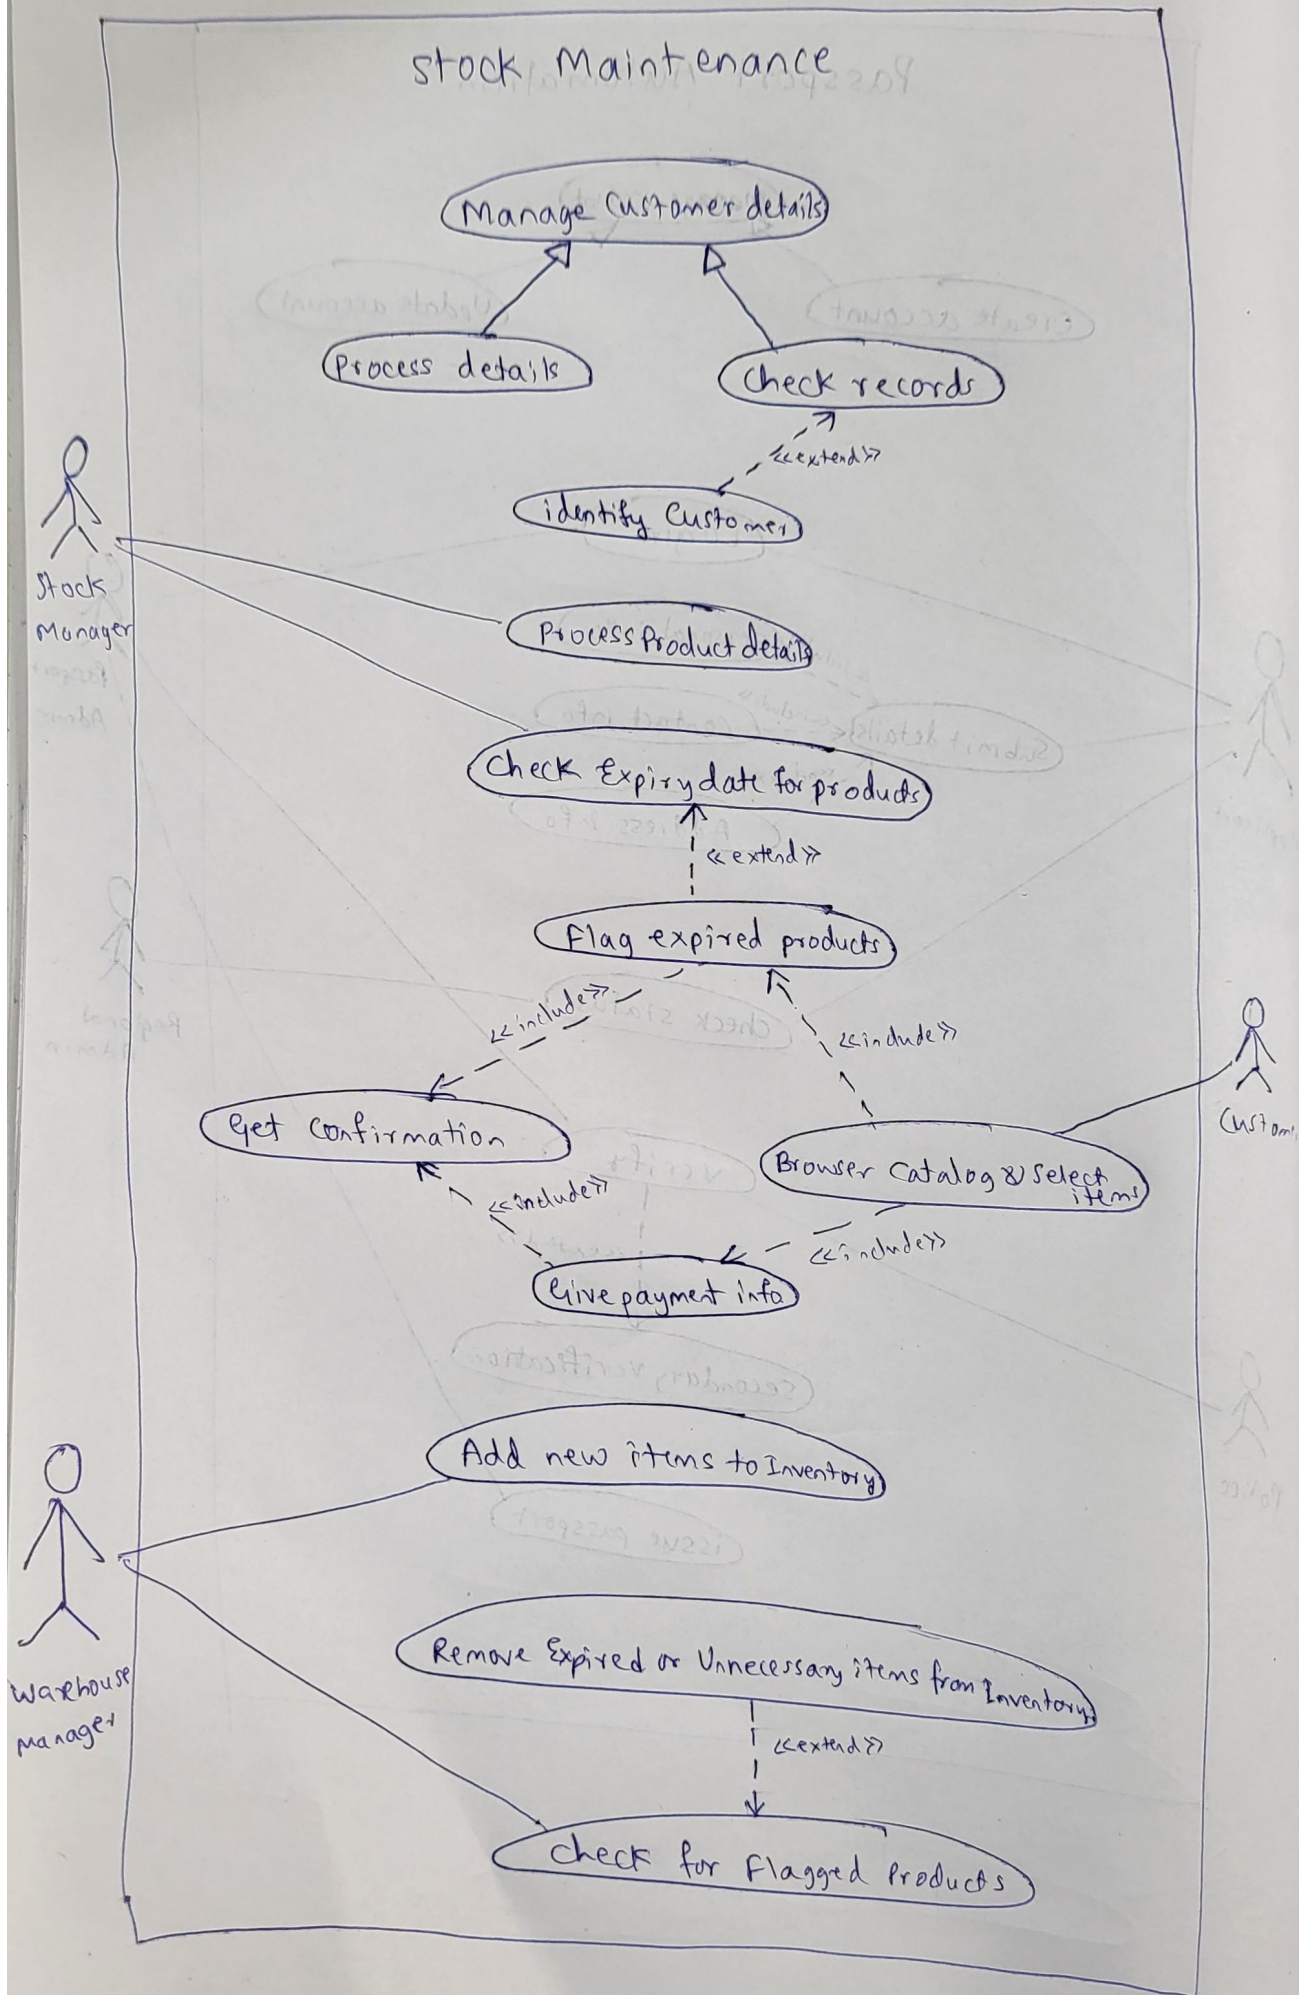 Stock Maintenance
Manage Customer details
Process details
Check records
<<extend>>
identify Customer
Stock
Manager
Process Product details
Check Expiry date for products
<<extend>>
Flag expired products
<<include>>
<<include>>
Get Confirmation
Custom
Browser Catalog & Select
items
<<include>>
<<include>>
Give payment info
Add new items to Inventory
Remove Expired or Unnecessary items from Inventory
Warehouse
Manager
<<extend>>
Check for Flagged Products